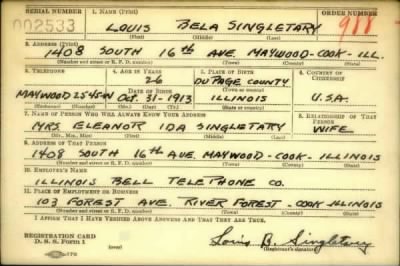 SERIAL NUMBER 1. NAME (Print)
002533 LOUIS BELA SINGLETARY 911
(First) (Middle) (Last)
2. ADDRESS (Print)
1408 SOUTH 16th AVE. MAYWOOD-COOK-ILL.
(Number and street or R. F. D. number) (Town) (County) (State)
3. TELEPHONE 4. AGE IN YEARS 5. PLACE OF BIRTH 6. COUNTRY OF CITIZENSHIP
26 DU PAGE COUNTY
DATE OF BIRTH (Town or county)
MAYWOOD 2545-W OCT. 31-1913 ILLINOIS U.S.A.
(Exchange) (Number) (Mo.) (Day) (Yr.) (State or country)
7. NAME OF PERSON WHO WILL ALWAYS KNOW YOUR ADDRESS 8. RELATIONSHIP OF THAT PERSON
MRS ELEANOR IDA SINGLETARY WIFE
(Mr., Mrs., Miss) (First) (Middle) (Last)
9. ADDRESS OF THAT PERSON
1408 SOUTH 16TH AVE. MAYWOOD-COOK-ILLINOIS
(Number and street or R. F. D. number) (Town) (County) (State)
10. EMPLOYER'S NAME
ILLINOIS BELL TELEPHONE CO.
11. PLACE OF EMPLOYMENT OR BUSINESS
103 FOREST AVE. RIVER FOREST-COOK ILLINOIS
(Number and street or R. F. D. number) (Town) (County) (State)
I AFFIRM THAT I HAVE VERIFIED ABOVE ANSWERS AND THAT THEY ARE TRUE.
REGISTRATION CARD
D. S. S. Form 1 Louis B. Singletary
(Registrant's signature)